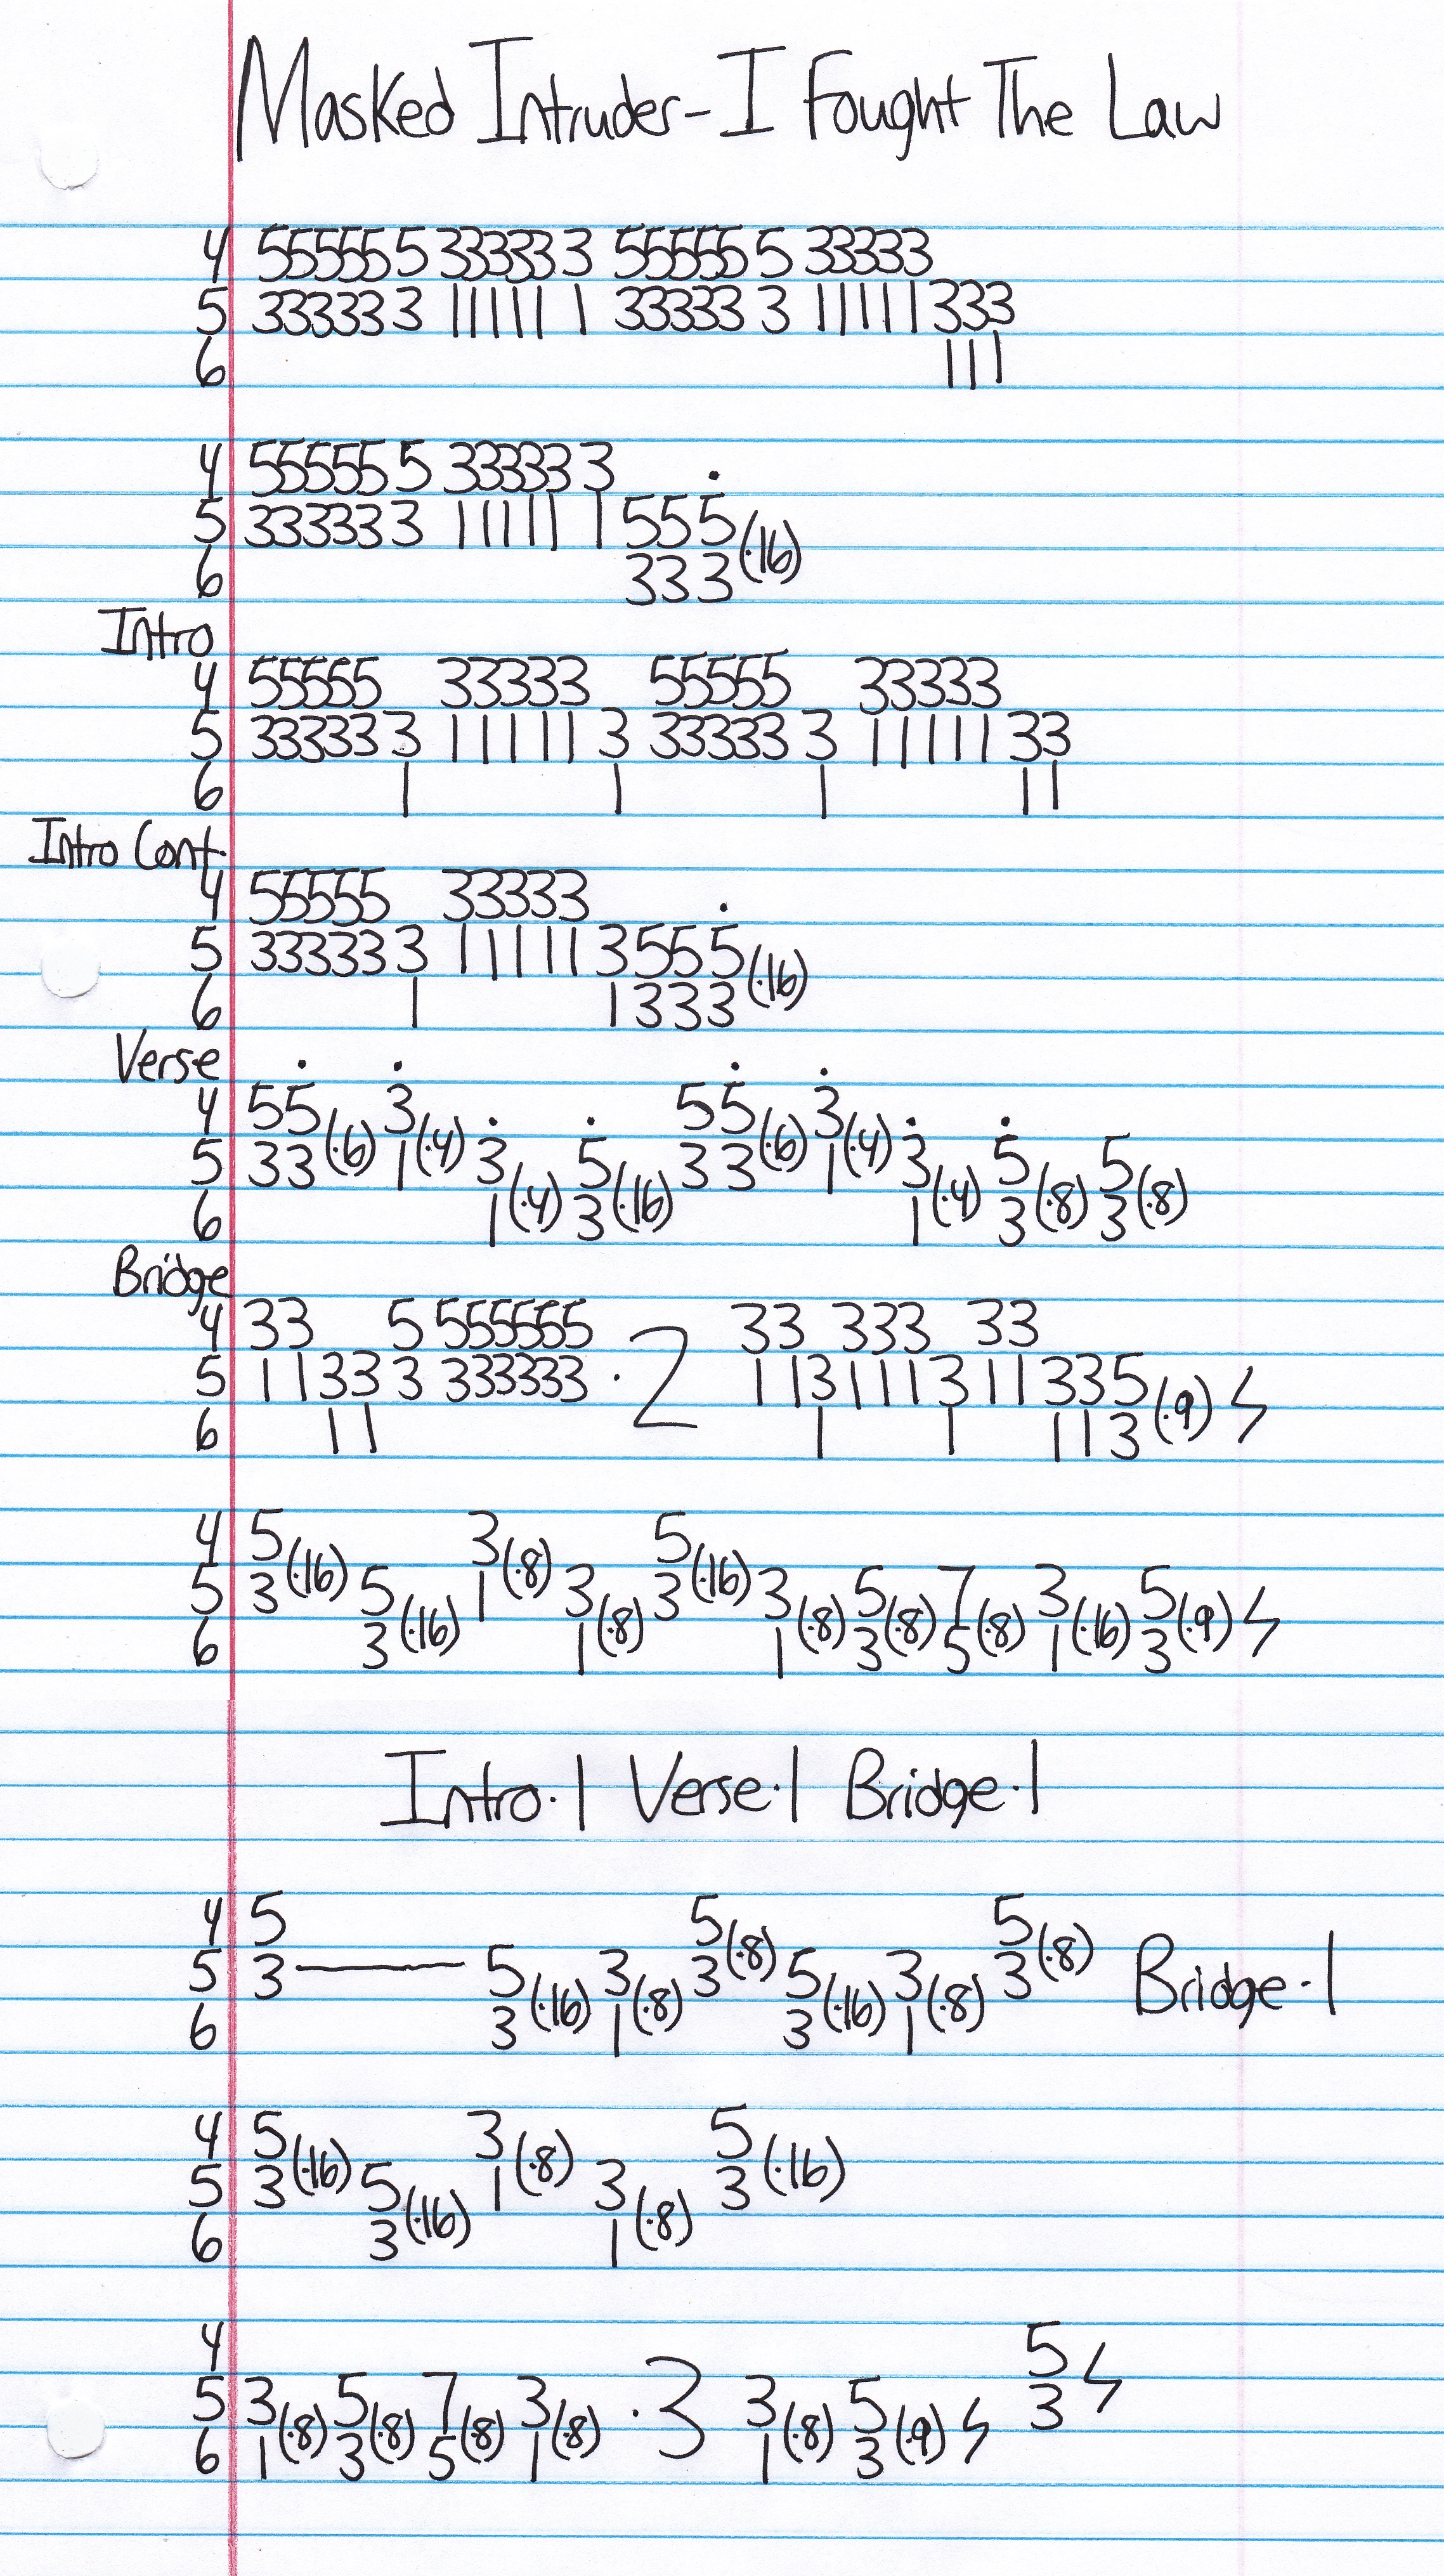 Masked Intruder-I Fought The Law
4 55555 5 33333 3 55555 5 33333
5 33333 3 11111 1 33333 3 11111 333
6 111
4 55555 5 33333 3
5 33333 3 11111 1 555 (·16)
6 333
Intro
4 55555 33333 55555 33333
5 33333 3 11111 3 33333 3 11111 33
6 1 1 1 11
Intro Cont.
4 55555 33333
5 33333 3 11111 3555 (·16)
6 1 1333
Verse
4 55 3 55 3
5 33 (·6) 1 (·4) 3 5 33 (·6) 1 (·4) 3 5 5
6 1 (·4) 3 (·16) 1 (·4) 3 (·8) 3 (·8)
Bridge
4 33 5 555555 33 333 33
5 1133 3 333333 ·2 113111311335 (·9)
6 11 1 1 113
4 5 3 5
5 3 (·16) 5 1 (·8) 3 3 (·16) 3 5 7 3 5
6 3 (·16) 1 (·8) 1 (·8) 3 (·8) 5 (·8) 1 (·16) 3 (·9)
Intro·1 Verse·1 Bridge·1
4 5 5 5
5 3 5 3 3 (·8) 5 3 3 (·8) Bridge·1
6 3 (·16) 1 (·8) 3 (·16) 1 (·8)
4 5 3 5
5 3 (·16) 5 1 (·8) 3 3 (·16)
6 3 (·16) 1 (·8)
4 5
5 3 5 7 3 ·3 3 5 3
6 1 (·8) 3 (·8) 5 (·8) 1 (·8) 1 (·8) 3 (·9)